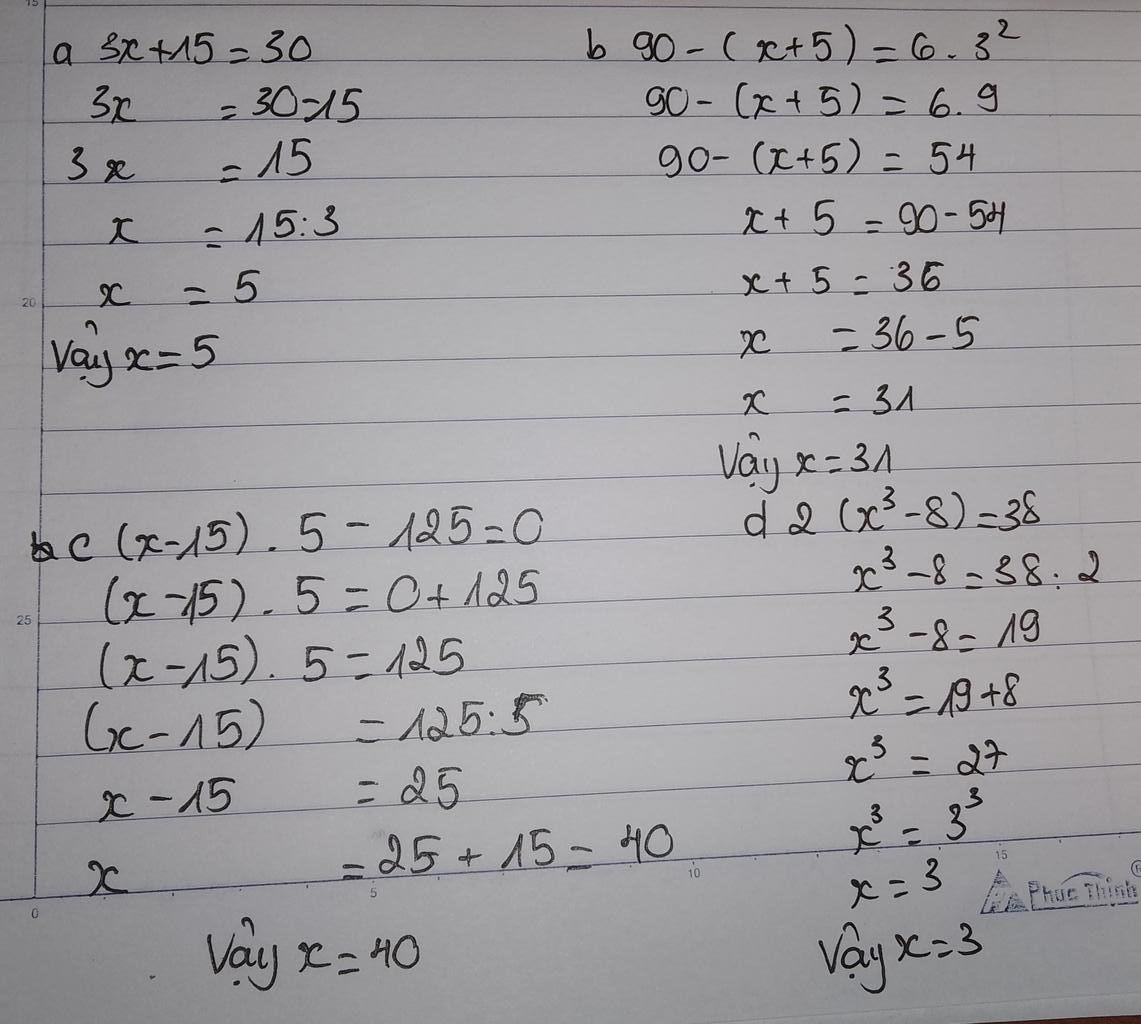 a 3x+15=30
3x = 30-15
3x = 15
x = 15:3
x = 5
Vậy x=5
b 90-(x+5)=6.3²
90-(x+5)=6.9
90-(x+5)=54
x+5=90-54
x+5=36
x =36-5
x =31
Vậy x=31
c (x-15).5-125=0
(x-15).5=0+125
(x-15).5=125
(x-15) =125:5
x-15 =25
x =25+15=40
Vậy x=40
d 2(x³-8)=38
x³-8=38:2
x³-8=19
x³=19+8
x³=27
x³=3³
x=3
Vậy x=3
15
20
25
0 5 10 15
Phuc Thinh ®